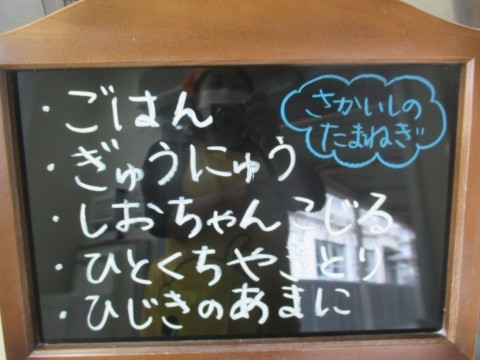 ・ごはん
・ぎゅうにゅう
・しおちゃんこじる
・ひとくちやきとり
・ひじきのあまに
さかいしの
たまねぎ